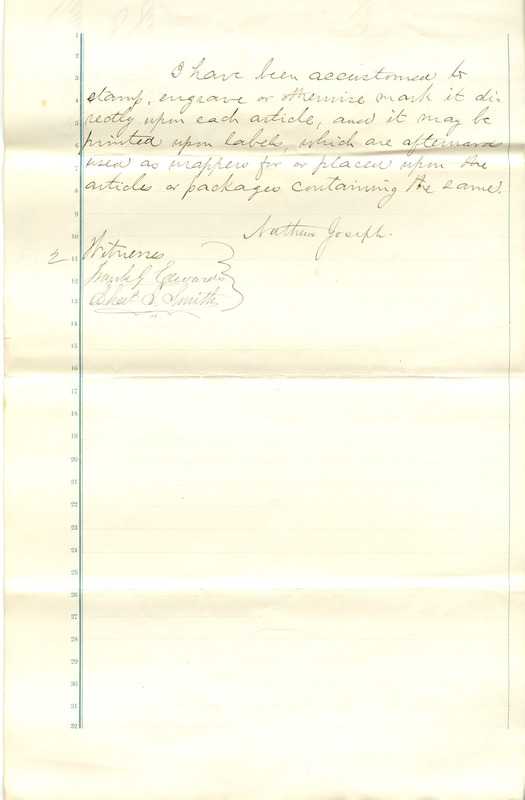 I have been accustomed to
stamp, engrave or otherwise mark it di-
rectly upon each article, and it may be
printed upon labels, which are afterward
used as wrappers for or placed upon the
articles or packages containing the same.
Nathan Joseph.
2 Witness
Frank J Edwards
Chas. D. Smith
1
2
3
4
5
6
7
8
9
10
11
12
13
14
15
16
17
18
19
20
21
22
23
24
25
26
27
28
29
30
31
32